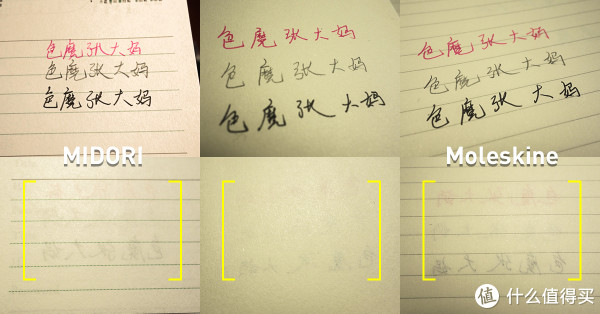 色魔张大妈
色魔张大妈
色魔张大妈
色魔张大妈
色魔张大妈
色魔张大妈
色魔张大妈
色魔张大妈
色魔张大妈
MIDORI
Moleskine
值 什么值得买